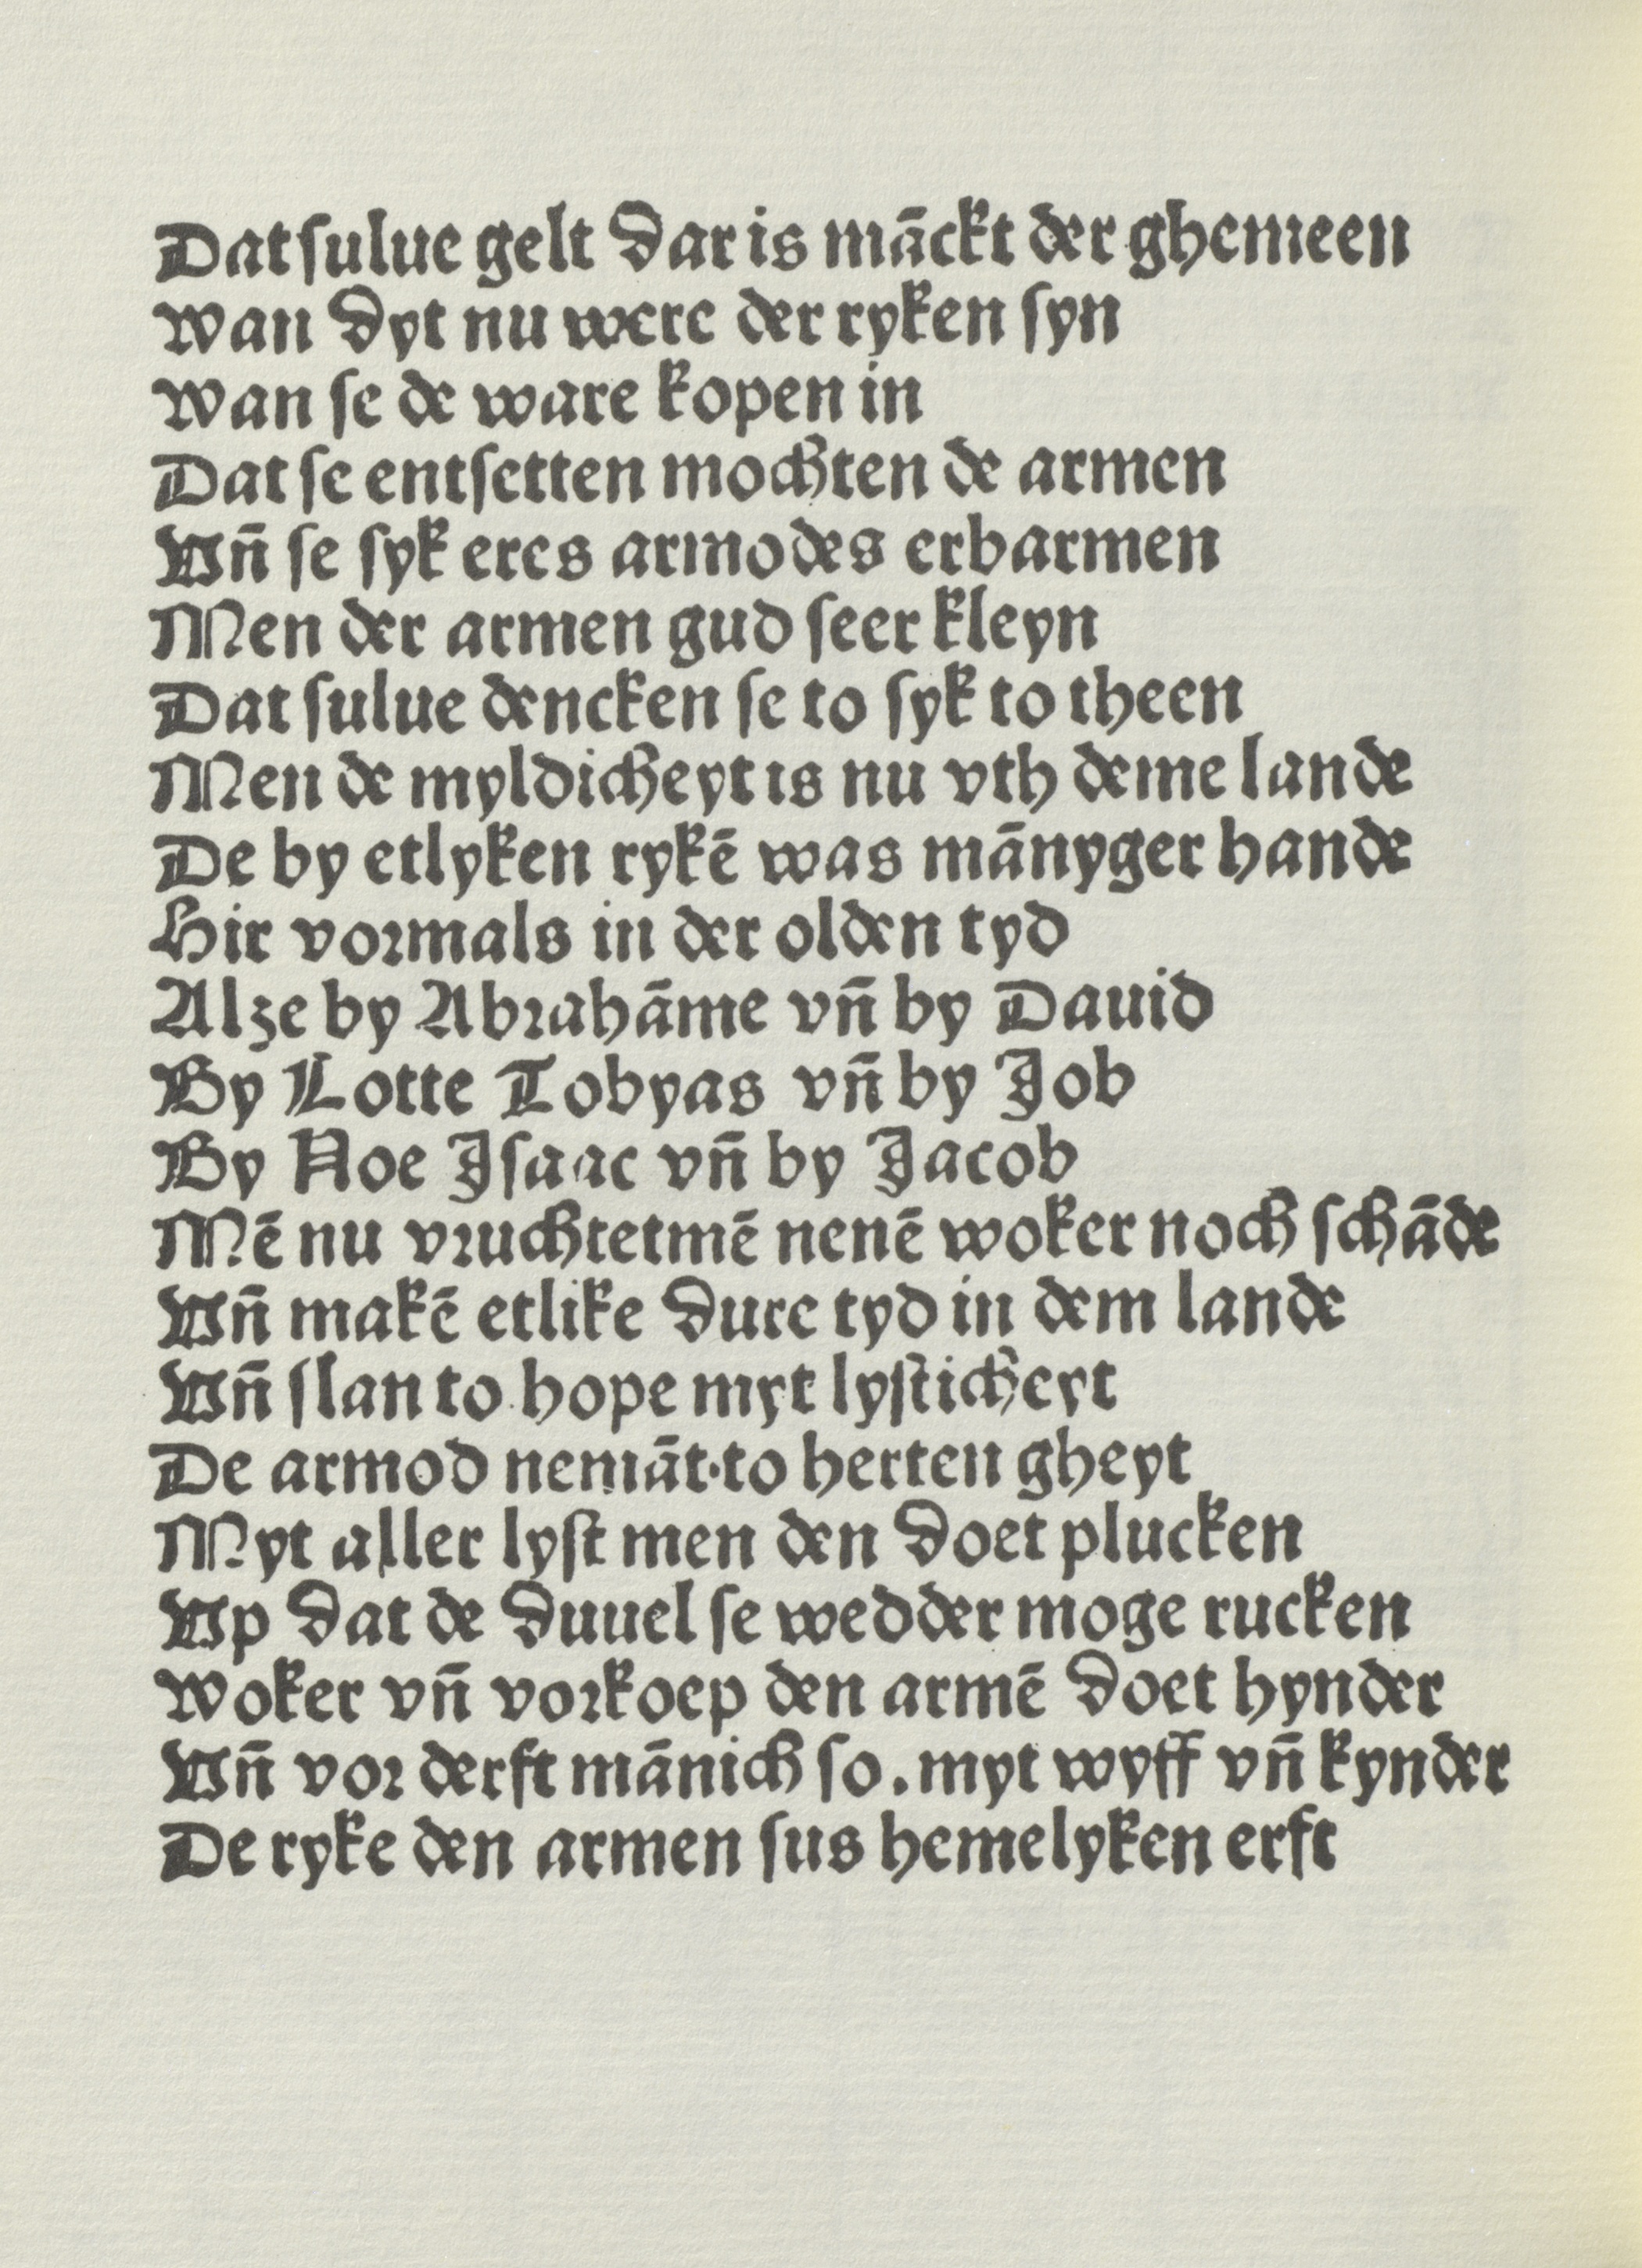 Dat ſulue gelt dar is mãckt der ghemeen
Wan dyt nu were der ryken ſyn
Wan ſe de ware kopen in
Dat ſe entſetten mochten de armen
Vñ ſe ſyk eres armodes erbarmen
Men der armen gud ſeer kleyn
Dat ſulue dencken ſe to ſyk to theen
Men de myldicheyt is nu vth deme lande
De by etlyken rykẽ was mãnyger hande
Hir vormals in der olden tyd
Alze by Abrahãme vñ by Dauid
By Lotte Tobyas vñ by Job
By Noe Jſaac vñ by Jacob
Mẽ nu vruchtetmẽ nenẽ woker noch ſchãde
Vñ makẽ etlike dure tyd in dem lande
Vñ ſlan to hope myt lyſticheyt
De armod nemãt·to herten gheyt
Myt aller lyſt men den doet plucken
Vp dat de duuel ſe wedder moge rucken
Woker vñ vorkoep den armẽ doet hynder
Vñ vor derft mãnich ſo. myt wyff vñ kynder
De ryke den armen ſus hemelyken erft